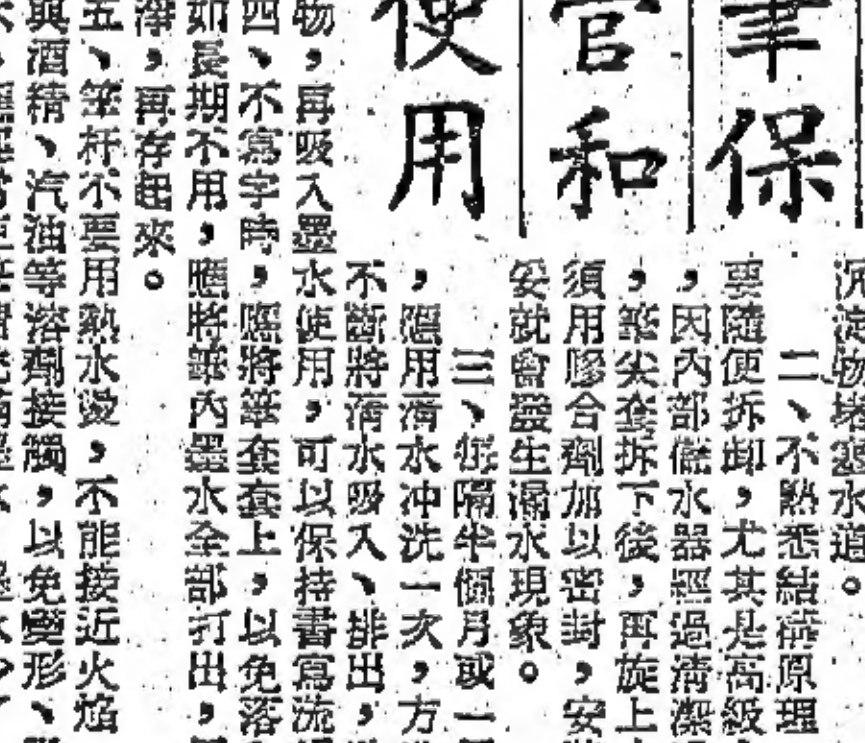 筆保
管和
使用
沉澱物堵塞水道。
二、不熟悉結構原理
要隨便拆卸，尤其是高級
，因內部儲水器經過清潔
，筆尖套拆下後，再旋上
須用膠合劑加以密封，安
妥就會發生漏水現象。
三、每隔半個月或一
，應用清水冲洗一次，方
不斷將清水吸入、排出，
物，再吸入墨水使用，可以保持書寫流
四、不寫字時，應將筆套套上，以免落
如長期不用，應將筆內墨水全部打出，
淨，再存起來。
五、筆杆不要用熱水燙，不能接近火焰
與酒精、汽油等溶劑接觸，以免變形、